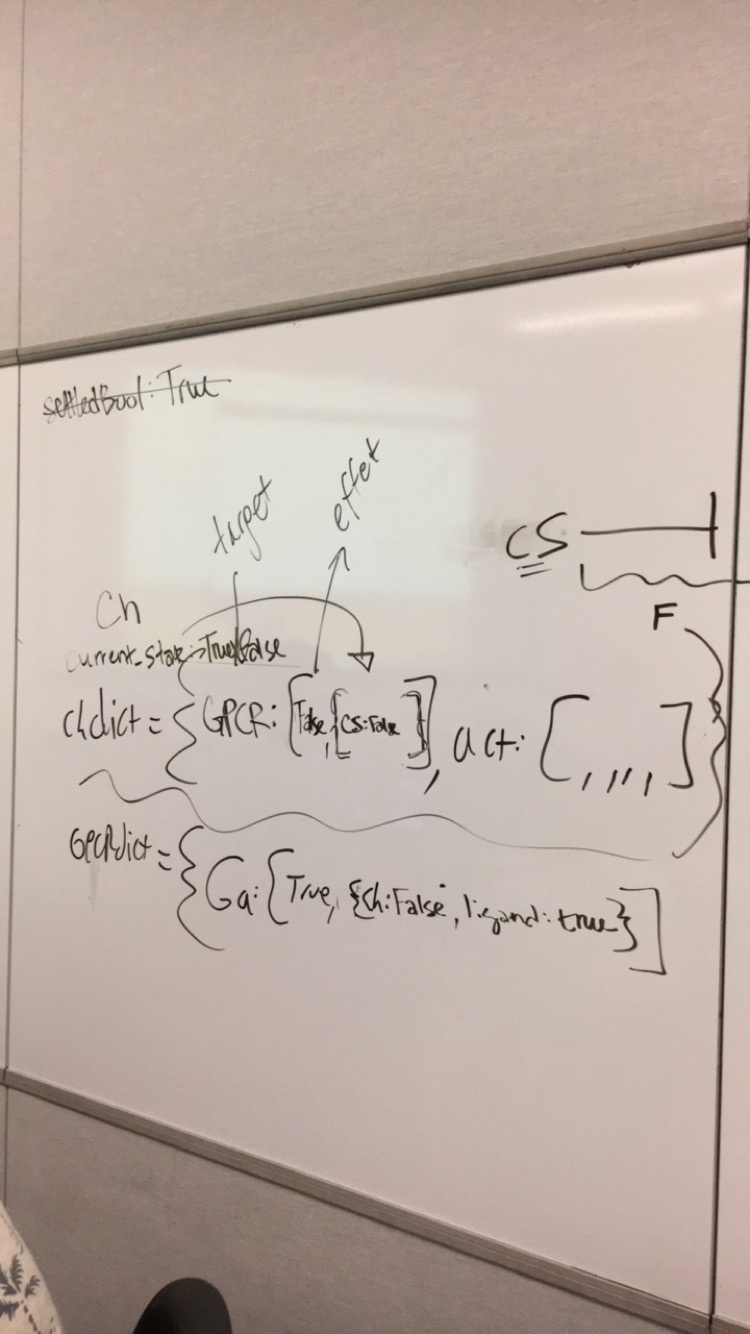 settledBool: True
target
effet
CS
Ch
F
current_state: True/False
chdict = { GPCR: [False, {CS:False }], act: [ , , , , ] }
GPCRdict = { Ga: [True, {Ch:False, ligand: true}]